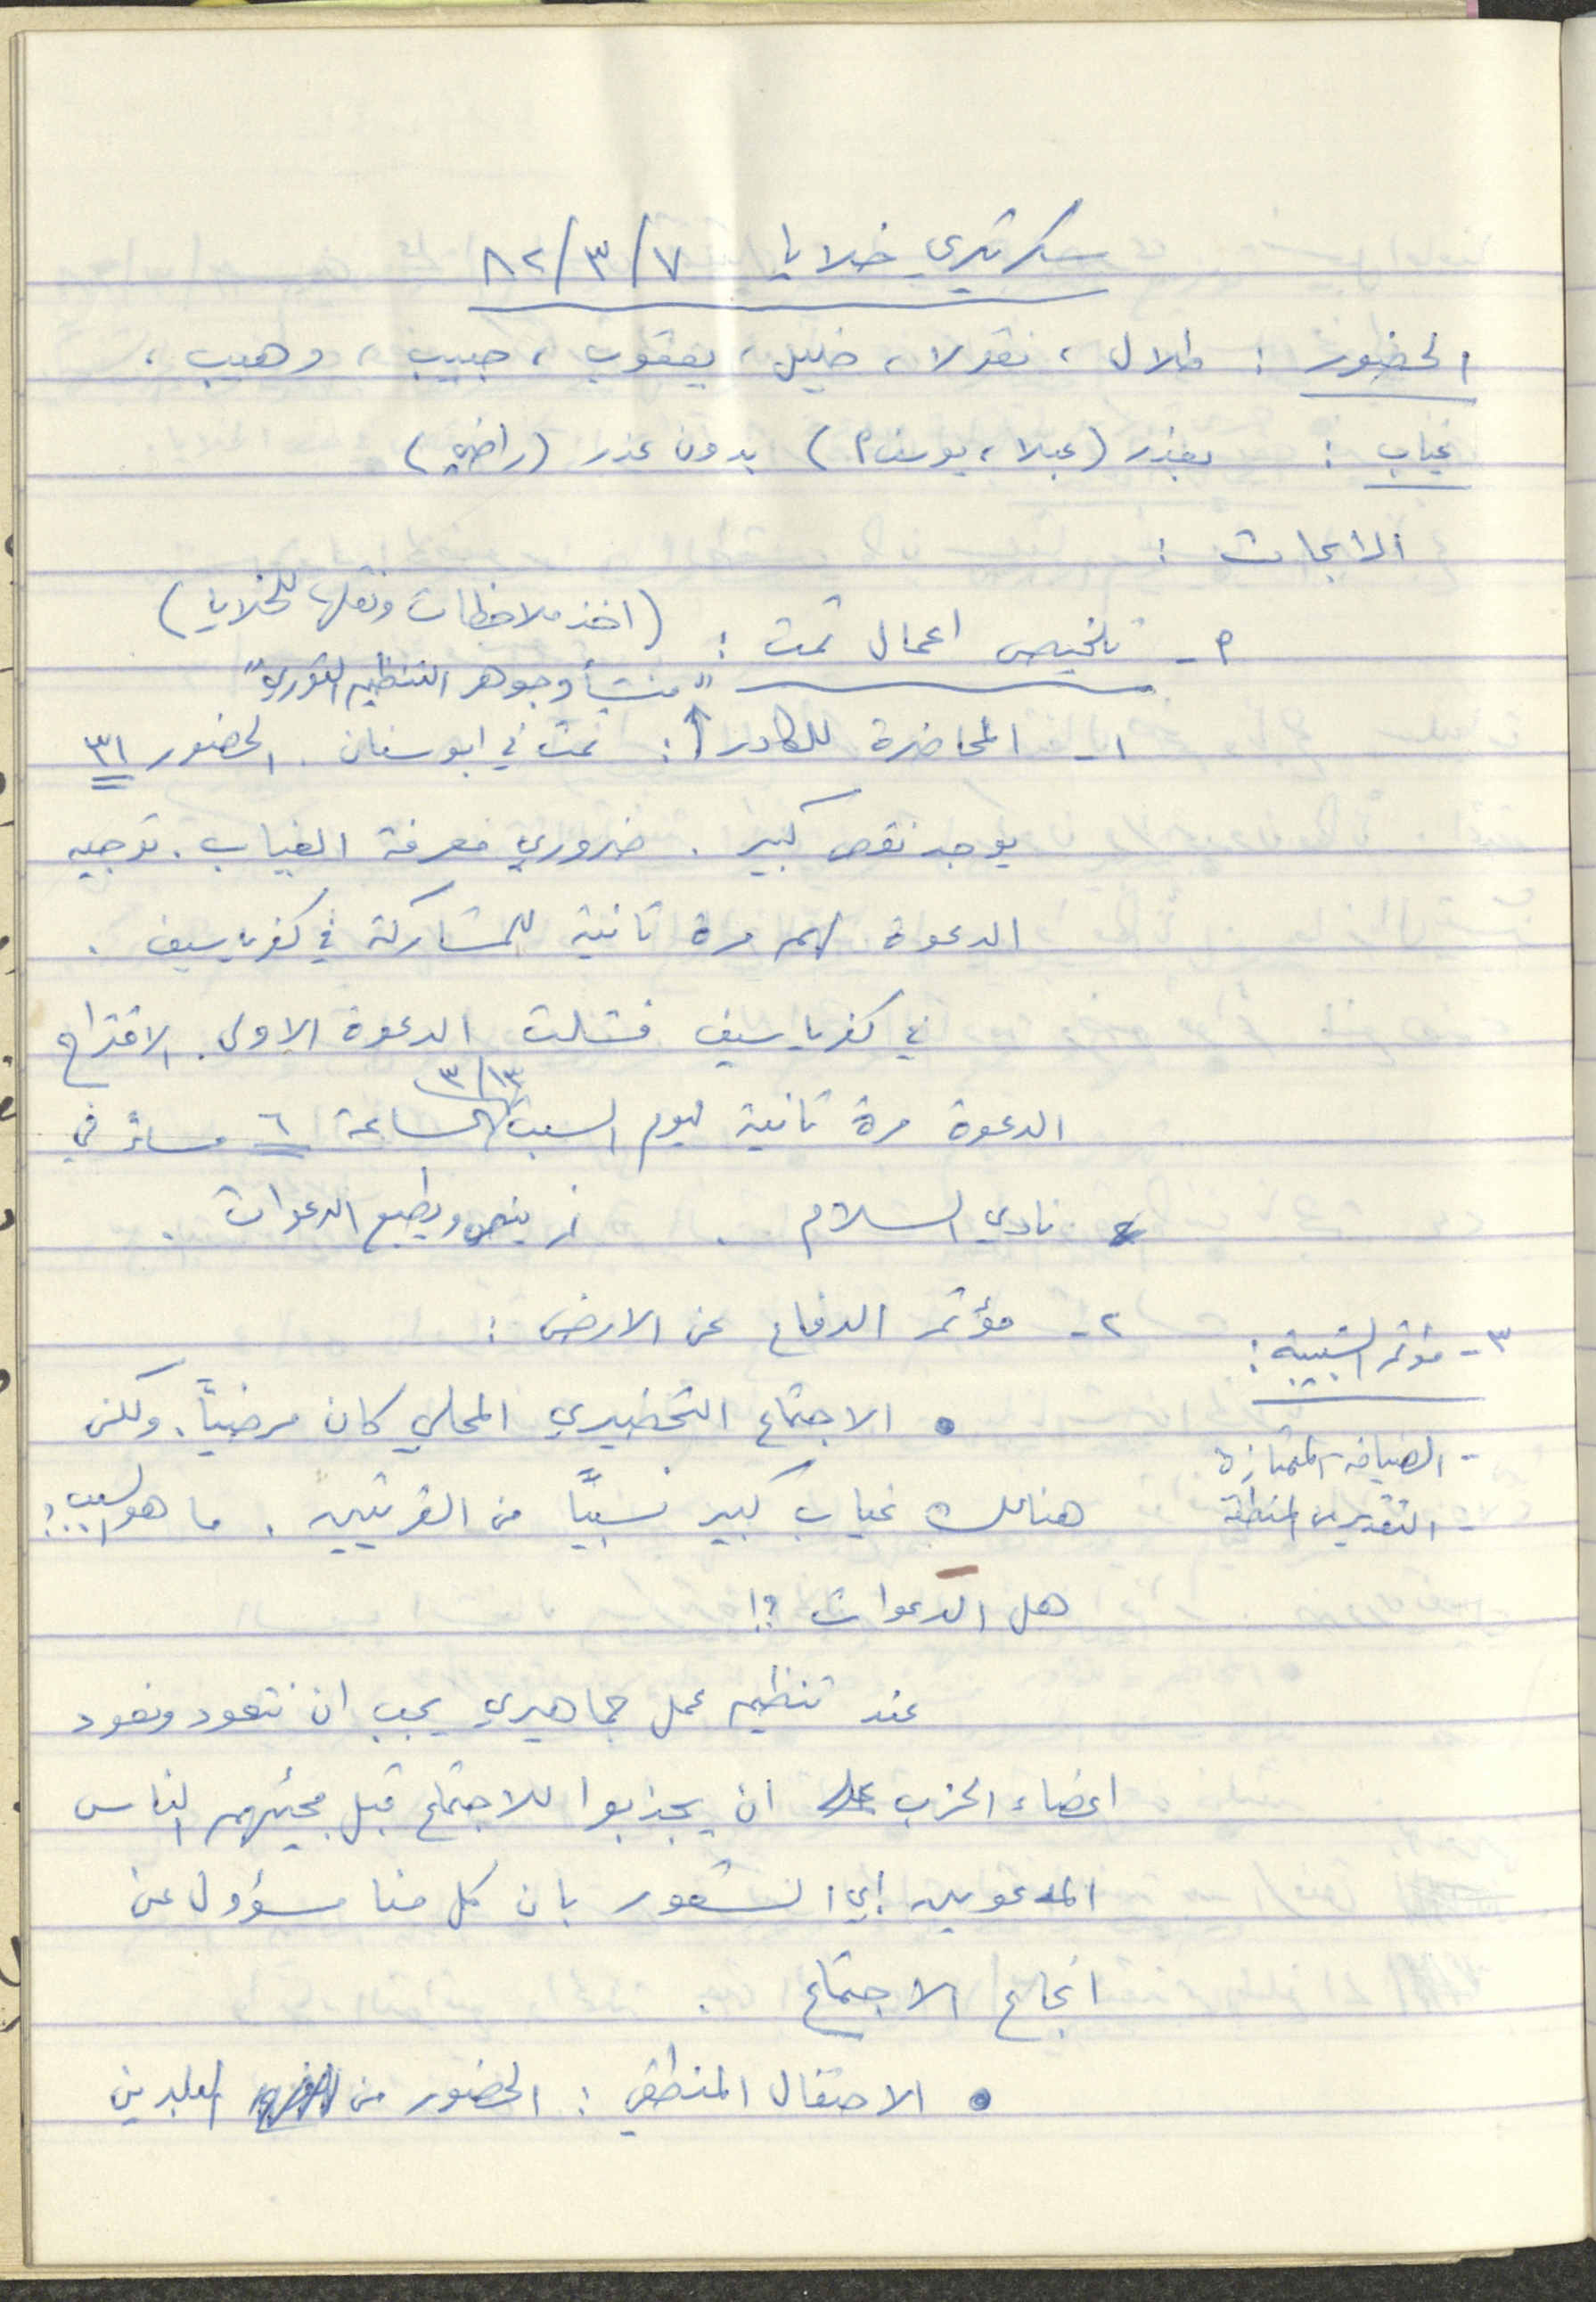 سكرتيري خلايا ٨٢/٣/٧
الحضور : طلال ، نقولا ، خليل ، يعقوب ، حبيب ، وهيب ،
غياب : بعذر (عبلا ، يوسف م) بدون عذر (راضي)
الابحاث :
م - تلخيص اعمال تمت : (اخذ ملاحظات ونقلها للخلايا)
"منشأ وجوهر التنظيم الثوري"
١- المحاضرة للكادر : تمت في ابوسنان . الحضور ٣١
يوجد نقص كبير . ضروري معرفة الغياب . توجيه
الدعوة لهم مرة ثانية للمشاركة في كفرياسيف .
في كفرياسيف فشلت الدعوة الاولى . الاقتراح
الدعوة مرة ثانية ليوم السبت ٣/١٣ الساعة ٦ مساءً في
نادي السلام . ينص ويطبع الدعوات .
٢- مؤتمر الدفاع عن الارض :
• الاجتماع التحضيري المحلي كان مرضياً . ولكن
هنالك غياب كبير نسبياً من القريتين . ما هو السبب ؟
هل الدعوات ؟!
عند تنظيم عمل جماهيري يجب ان نتعود ونعود
اعضاء الحزب ان يجذبوا للاجتماع قبل مجيئهم الناس
المدعوين اي الشعور بان كل منا مسؤول عن
انجاح الاجتماع .
• الاحتفال المنطقي : الحضور من البلدين
٣- مؤتمر الشبيبة :
- الضيافة الممتازة
- التقدير من المنطقة